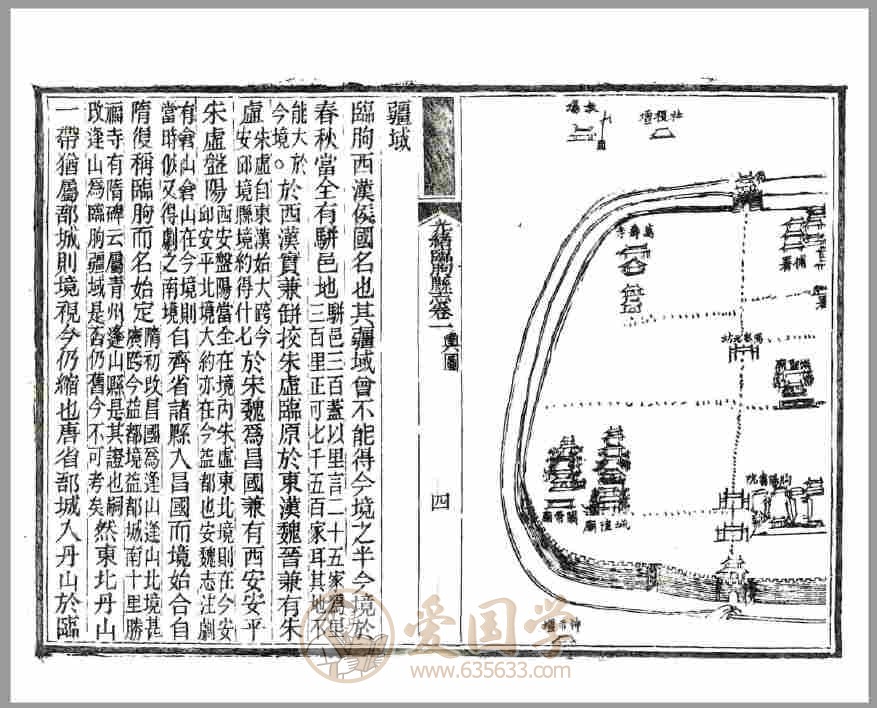 教場
社稷壇
萬壽亭
關帝廟
城隍廟
朐陽書院
光緒臨朐縣志卷一 輿圖
四
疆域
臨朐西漢侯國名也其疆域曾不能得今境之半今境於
春秋當全有駢邑地
駢邑三百蓋以里言二十五家爲里
三百里正可七千五百家耳其地不
能大於
今境。
於西漢實兼缾㧣朱虛臨原於東漢魏晉兼有朱
虛
朱虛自東漢始大跨今
安邱境縣境約得什七
於宋魏爲昌國兼有西安安平
朱虛盤陽
西安盤陽當全在境內朱虛東北境則在今安
邱安平北境大約亦在今益都也安魏志注劇
有倉山倉山在今境則
當時似又得劇之南境
自齊省諸縣入昌國而境始合自
隋復稱臨朐而名始定
隋初改昌國爲逢山逢山北境甚
廣跨今益都境益都城南十里勝
福寺有隋碑云屬青州逢山縣是其證也嗣
改逢山爲臨朐疆域是否仍舊今不可考矣
然東北丹山
一帶猶屬郚城則境視今仍縮也唐省郚城入丹山於臨
爱国学
www.635633.com